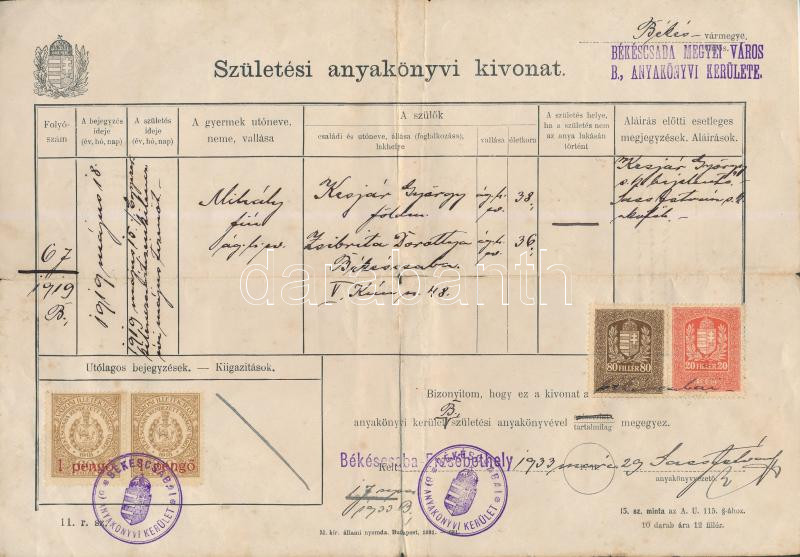 Békés vármegye,
BÉKÉSCSABA MEGYEI VÁROS
B., ANYAKÖNYVI KERÜLETE.
Születési anyakönyvi kivonat.
Folyó-szám
A bejegyzés ideje (év, hó, nap)
A születés ideje (év, hó, nap)
A gyermek utóneve, neme, vallása
A szülők
családi és utóneve, állása (foglalkozása), lakhelye
vallása
életkora
A születés helye, ha a születés nem az anya lakásán történt
Aláírás előtti esetleges megjegyzések. Aláírások.
67
1919
B.
1919 május 18
Mihály
fiú
ág. h. ev.
Kesjár György
földm.
ág. h. ev.
38
Zsibrita Dorottya
ág. h. ev.
36
Békéscsaba
V. Kün u. 48.
Kesjár György
s. k. bejelentő
darabanth
Utólagos bejegyzések. — Kiigazítások.
1 pengő
1 pengő
BÉKÉSCSABAI B) ANYAKÖNYVI KERÜLET
80 FILLÉR 80
20 FILLÉR 20
Bizonyítom, hogy ez a kivonat a
B.
anyakönyvi kerület születési anyakönyvével tartalmilag megegyez.
Békéscsaba Erzsébethely 1933 29
Kelt
1933 B
BÉKÉSCSABAI B) ANYAKÖNYVI KERÜLET
anyakönyvvezető.
11. r. sz.
M. kir. állami nyomda. Budapest,
15. sz. minta az A. U. 115. §-ához.
10 darab ára 12 fillér.